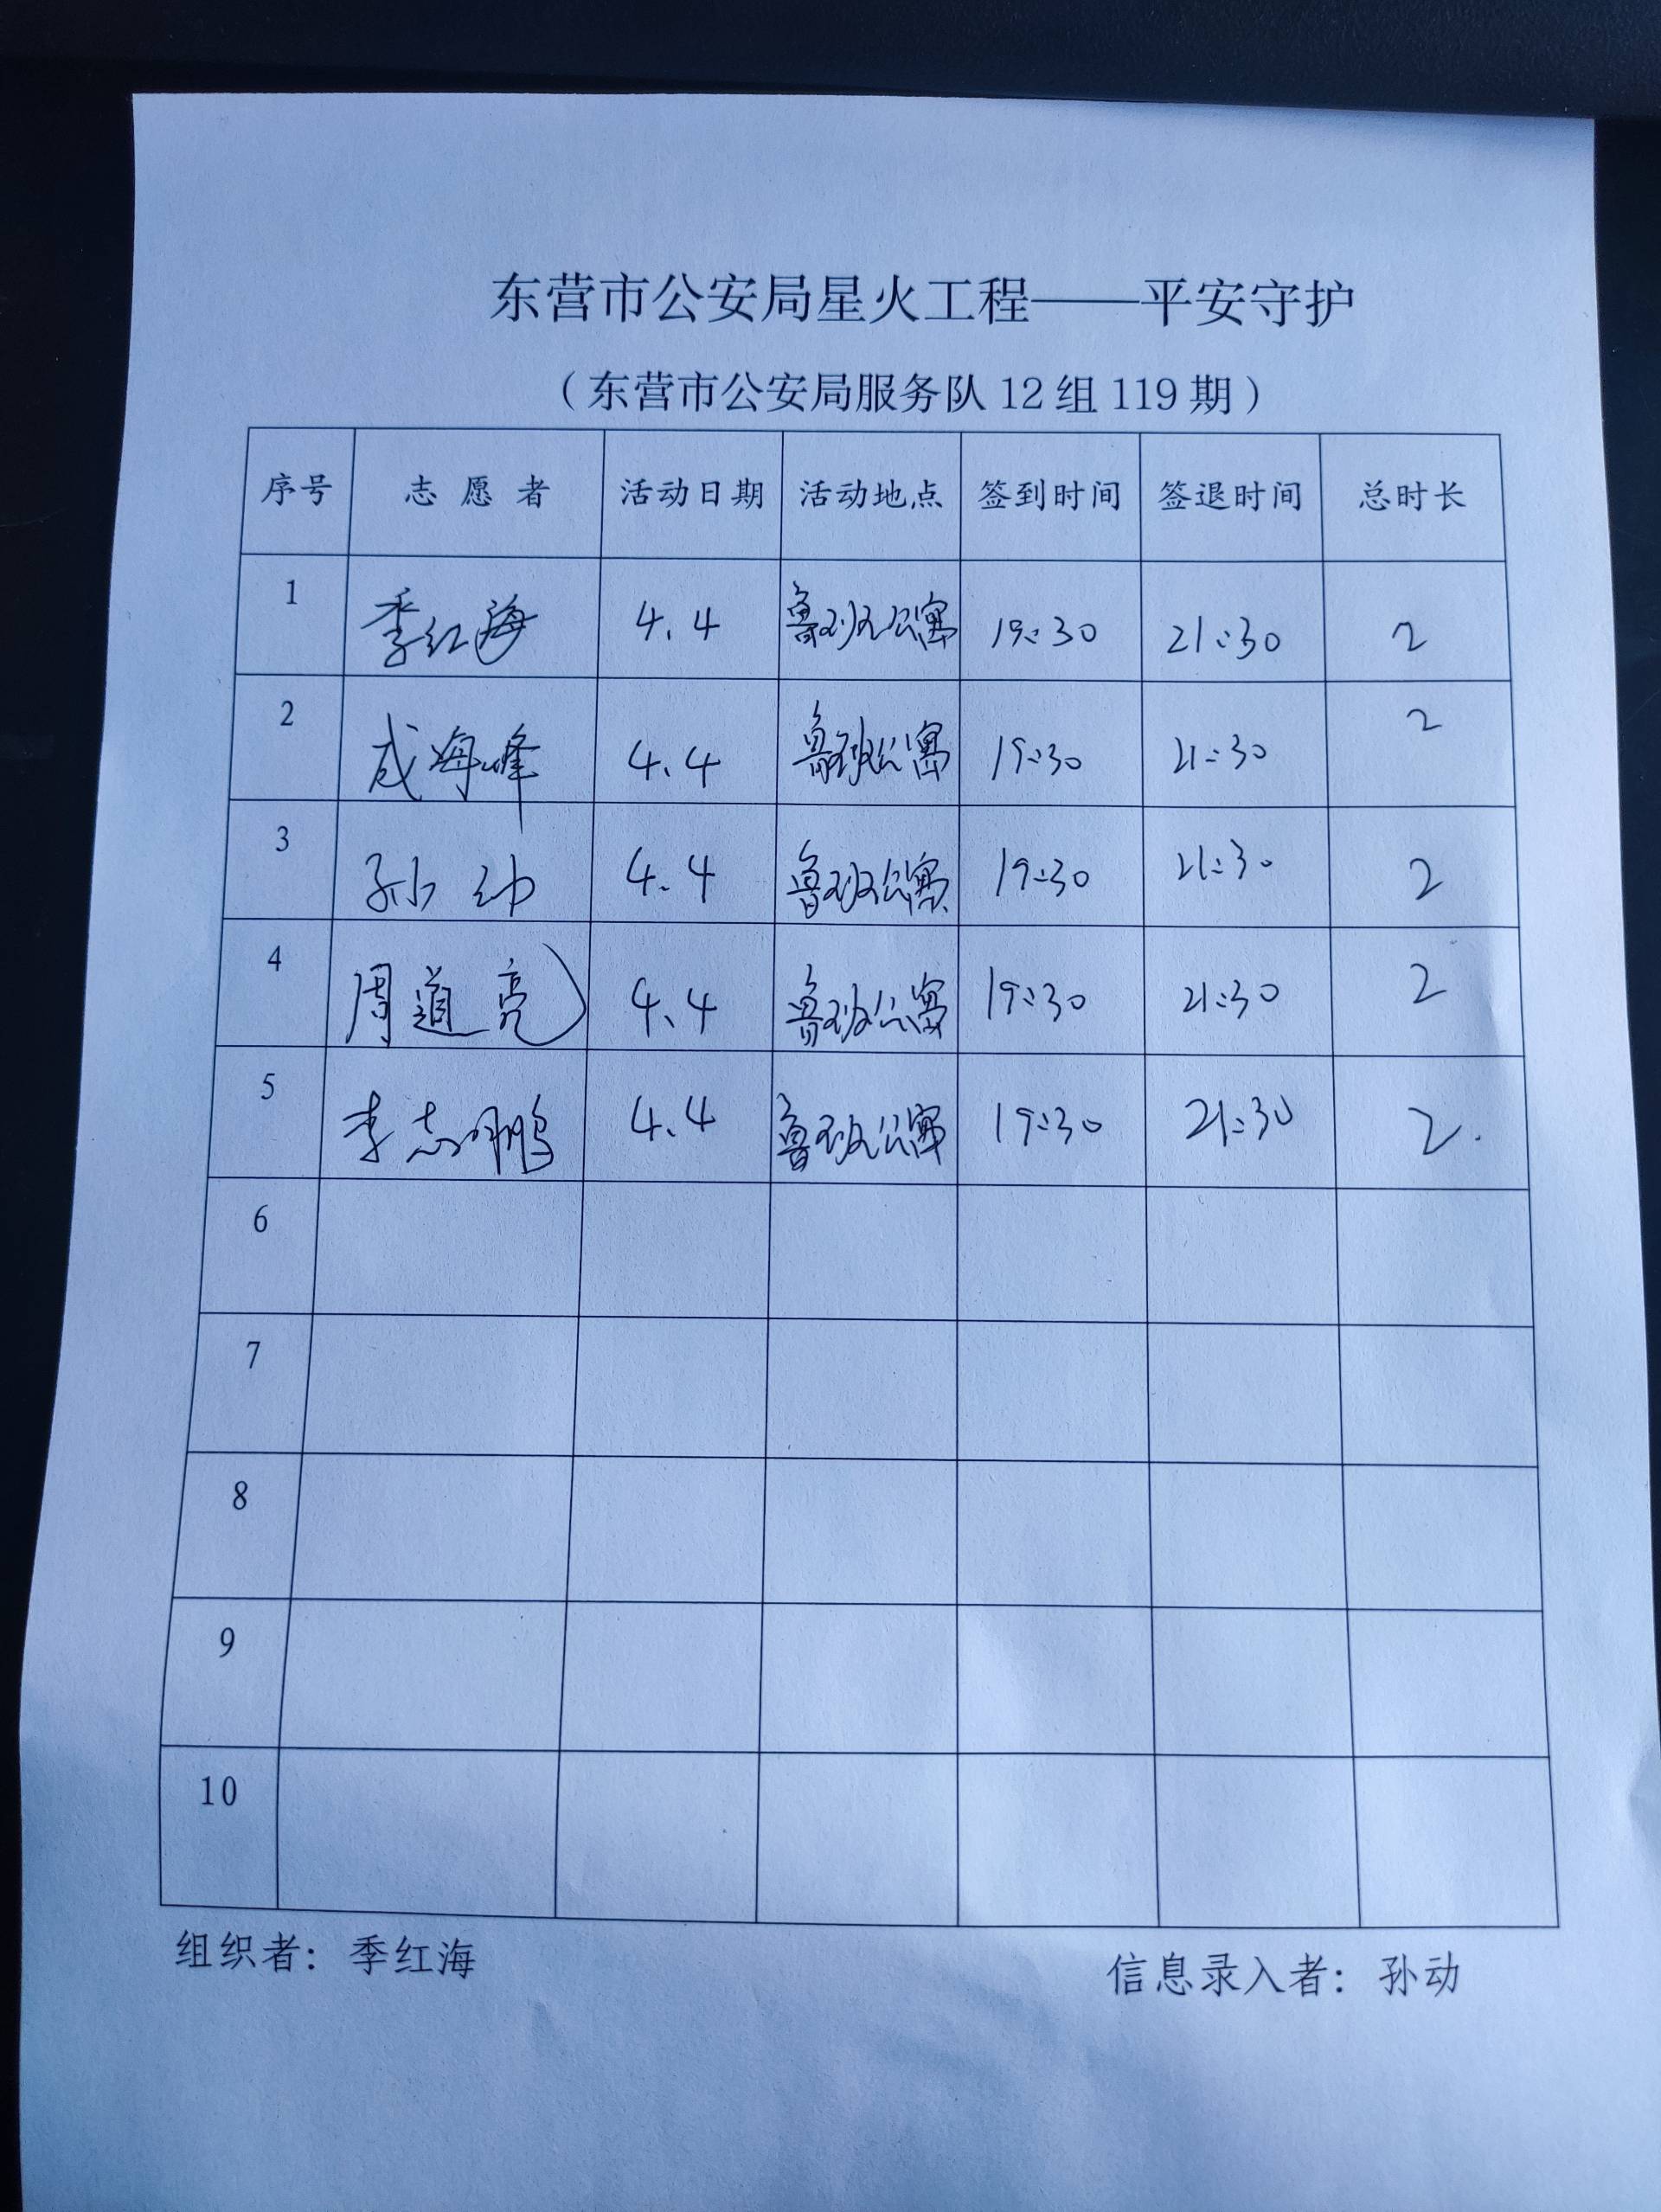 东营市公安局星火工程——平安守护
（东营市公安局服务队 12 组 119 期）
序号 志 愿 者 活动日期 活动地点 签到时间 签退时间 总时长
1 季红海 4.4 鲁班公寓 19:30 21:30 2
2 海峰 4.4 鲁班公寓 19:30 21:30 2
3 孙动 4.4 鲁班公寓 19:30 21:30 2
4 周道亮 4.4 鲁班公寓 19:30 21:30 2
5 李志鹏 4.4 鲁班公寓 19:30 21:30 2.
6
7
8
9
10
组织者：季红海 信息录入者：孙动